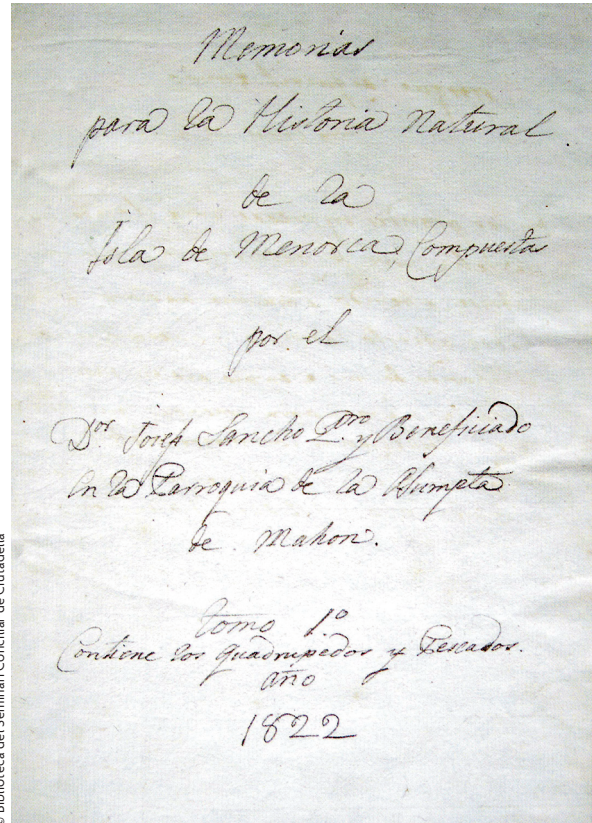 Memorias
para la Historia Natural.
de la
Isla de Menorca, Compuestas
por el
Dor Josef Sancho Pbro y Beneficiado
en la Parroquia de la Asumpta
de Mahon.
tomo 1º
Contiene los quadrupedos y Pescados.
año
1822
© Biblioteca del Seminari Conciliar de Ciutadella